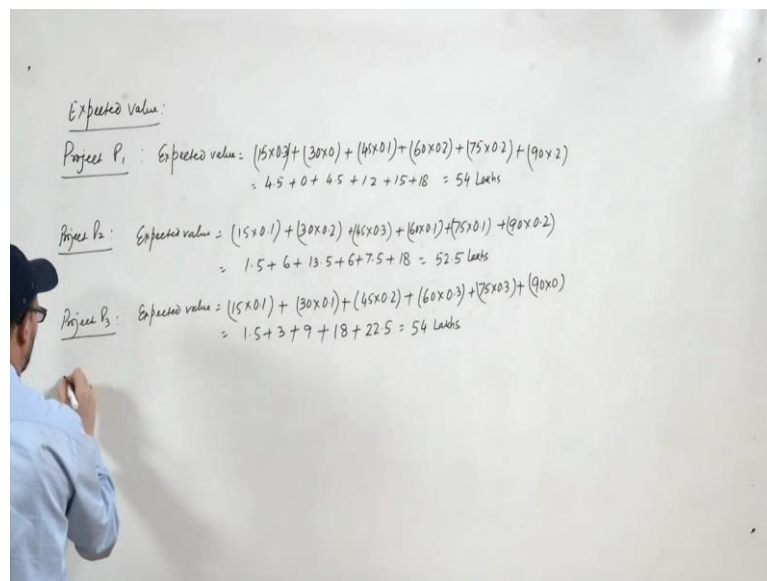 Expected value:
Project P1 : Expected value = (15x0.3)+(30x0)+(45x0.1)+(60x0.2)+(75x0.2)+(90x2)
= 4.5+0+4.5+12+15+18 = 54 Lakhs
Project P2: Expected value = (15x0.1)+(30x0.2)+(45x0.3)+(60x0.1)+(75x0.1)+(90x0.2)
= 1.5+6+13.5+6+7.5+18 = 52.5 Lakhs
Project P3: Expected value = (15x0.1)+(30x0.1)+(45x0.2)+(60x0.3)+(75x0.3)+(90x0)
= 1.5+3+9+18+22.5 = 54 Lakhs